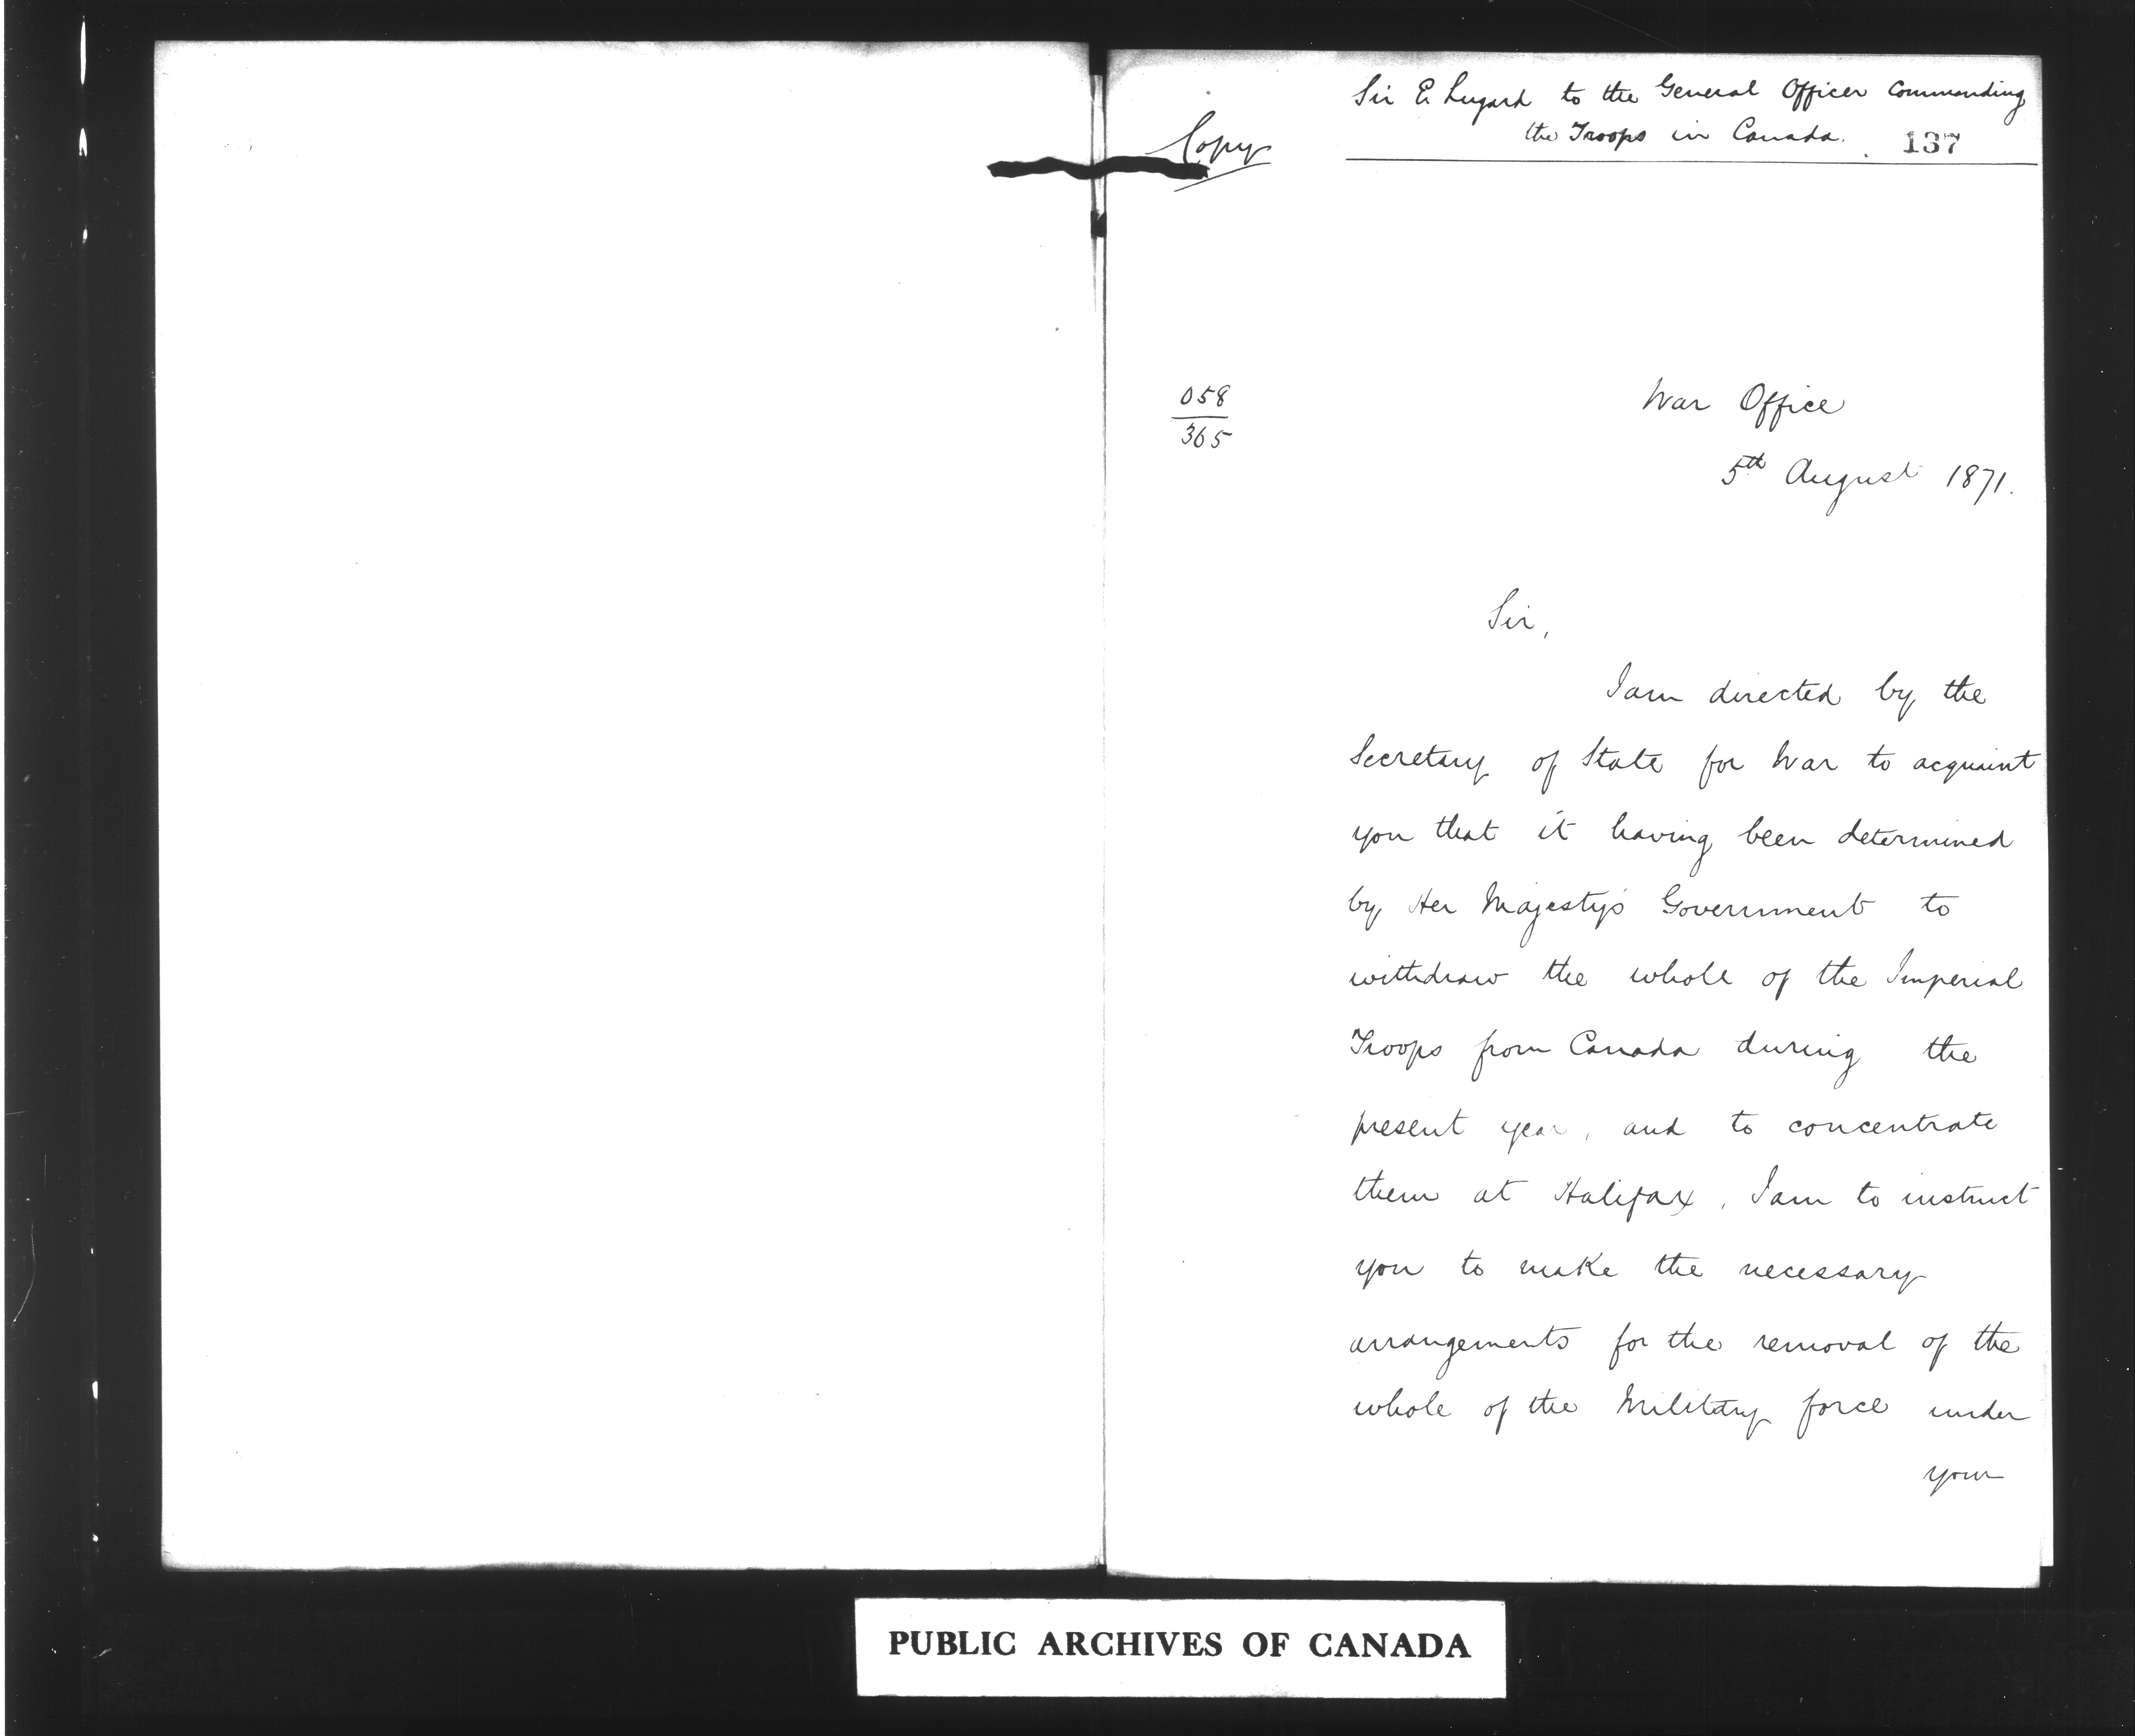 Sir E. Lugard to the General Officer Commanding
the Troops in Canada. 137
Copy
058
365
War Office
5th August 1871.
Sir,
I am directed by the
Secretary of State for War to acquaint
you that it having been determined
by Her Majesty's Government to
withdraw the whole of the Imperial
Troops from Canada during the
present year, and to concentrate
them at Halifax, I am to instruct
you to make the necessary
arrangements for the removal of the
whole of the Military force under
your
PUBLIC ARCHIVES OF CANADA